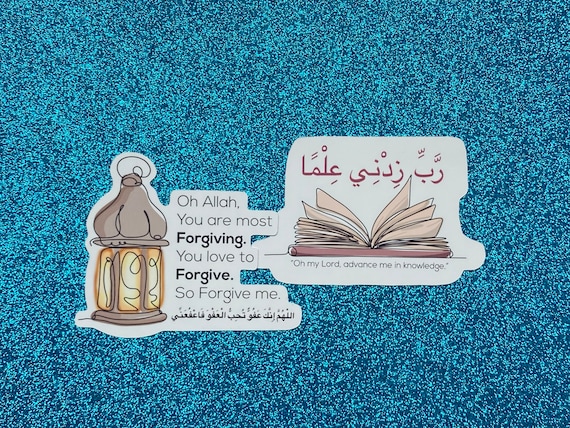 Oh Allah,
You are most
Forgiving.
You love to
Forgive.
So Forgive me.
اللَّهُمَّ إِنَّكَ عَفُوٌّ تُحِبُّ الْعَفْوَ فَاعْفُعَنِّي
رَّبِّ زِدْنِي عِلْمًا
"Oh my Lord, advance me in knowledge."